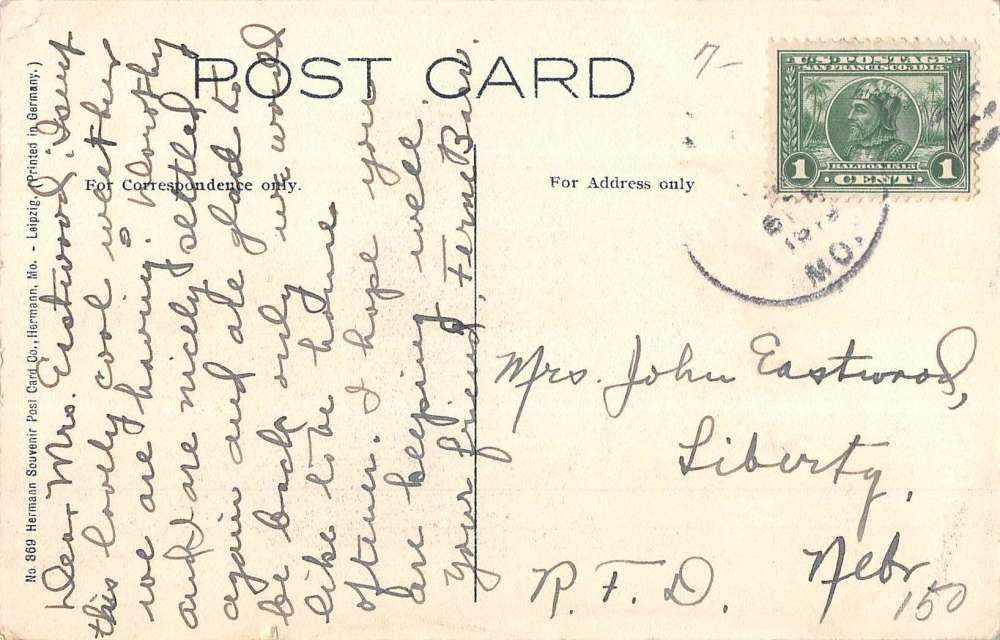 POST CARD
For Correspondence only.
For Address only
No. 869 Hermann Souvenir Post Card Co., Hermann, Mo. - Leipzig, (Printed in Germany.)
Dear Mrs. Eastwood; Isn't
this lovely cool weather
we are having. Dorothy
and I are nicely settled
again and are glad to
be back only we would
like to be home
oftener. I hope you
are keeping well
Your friend, Ferne
Mrs. John Eastwood,
Liberty,
Nebr
R. F. D.
150
7-
U.S. POSTAGE
SAN FRANCISCO 1915
BALBOA 1513
1 CENT 1
MO.